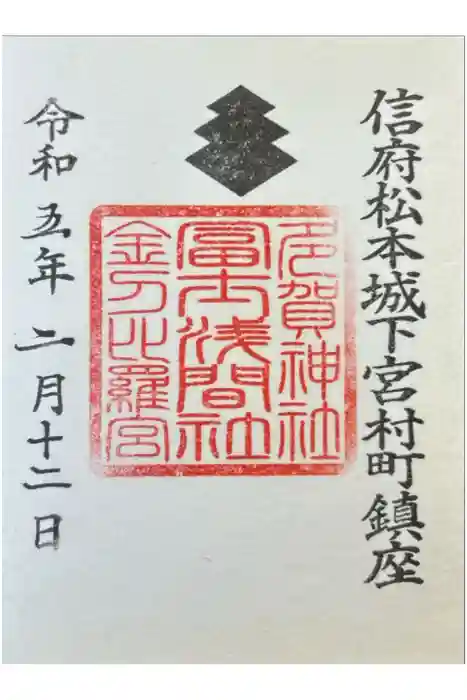 信府松本城下宮村町鎮座
多賀神社
冨士浅間社
金刀比羅宮
令和五年二月十二日